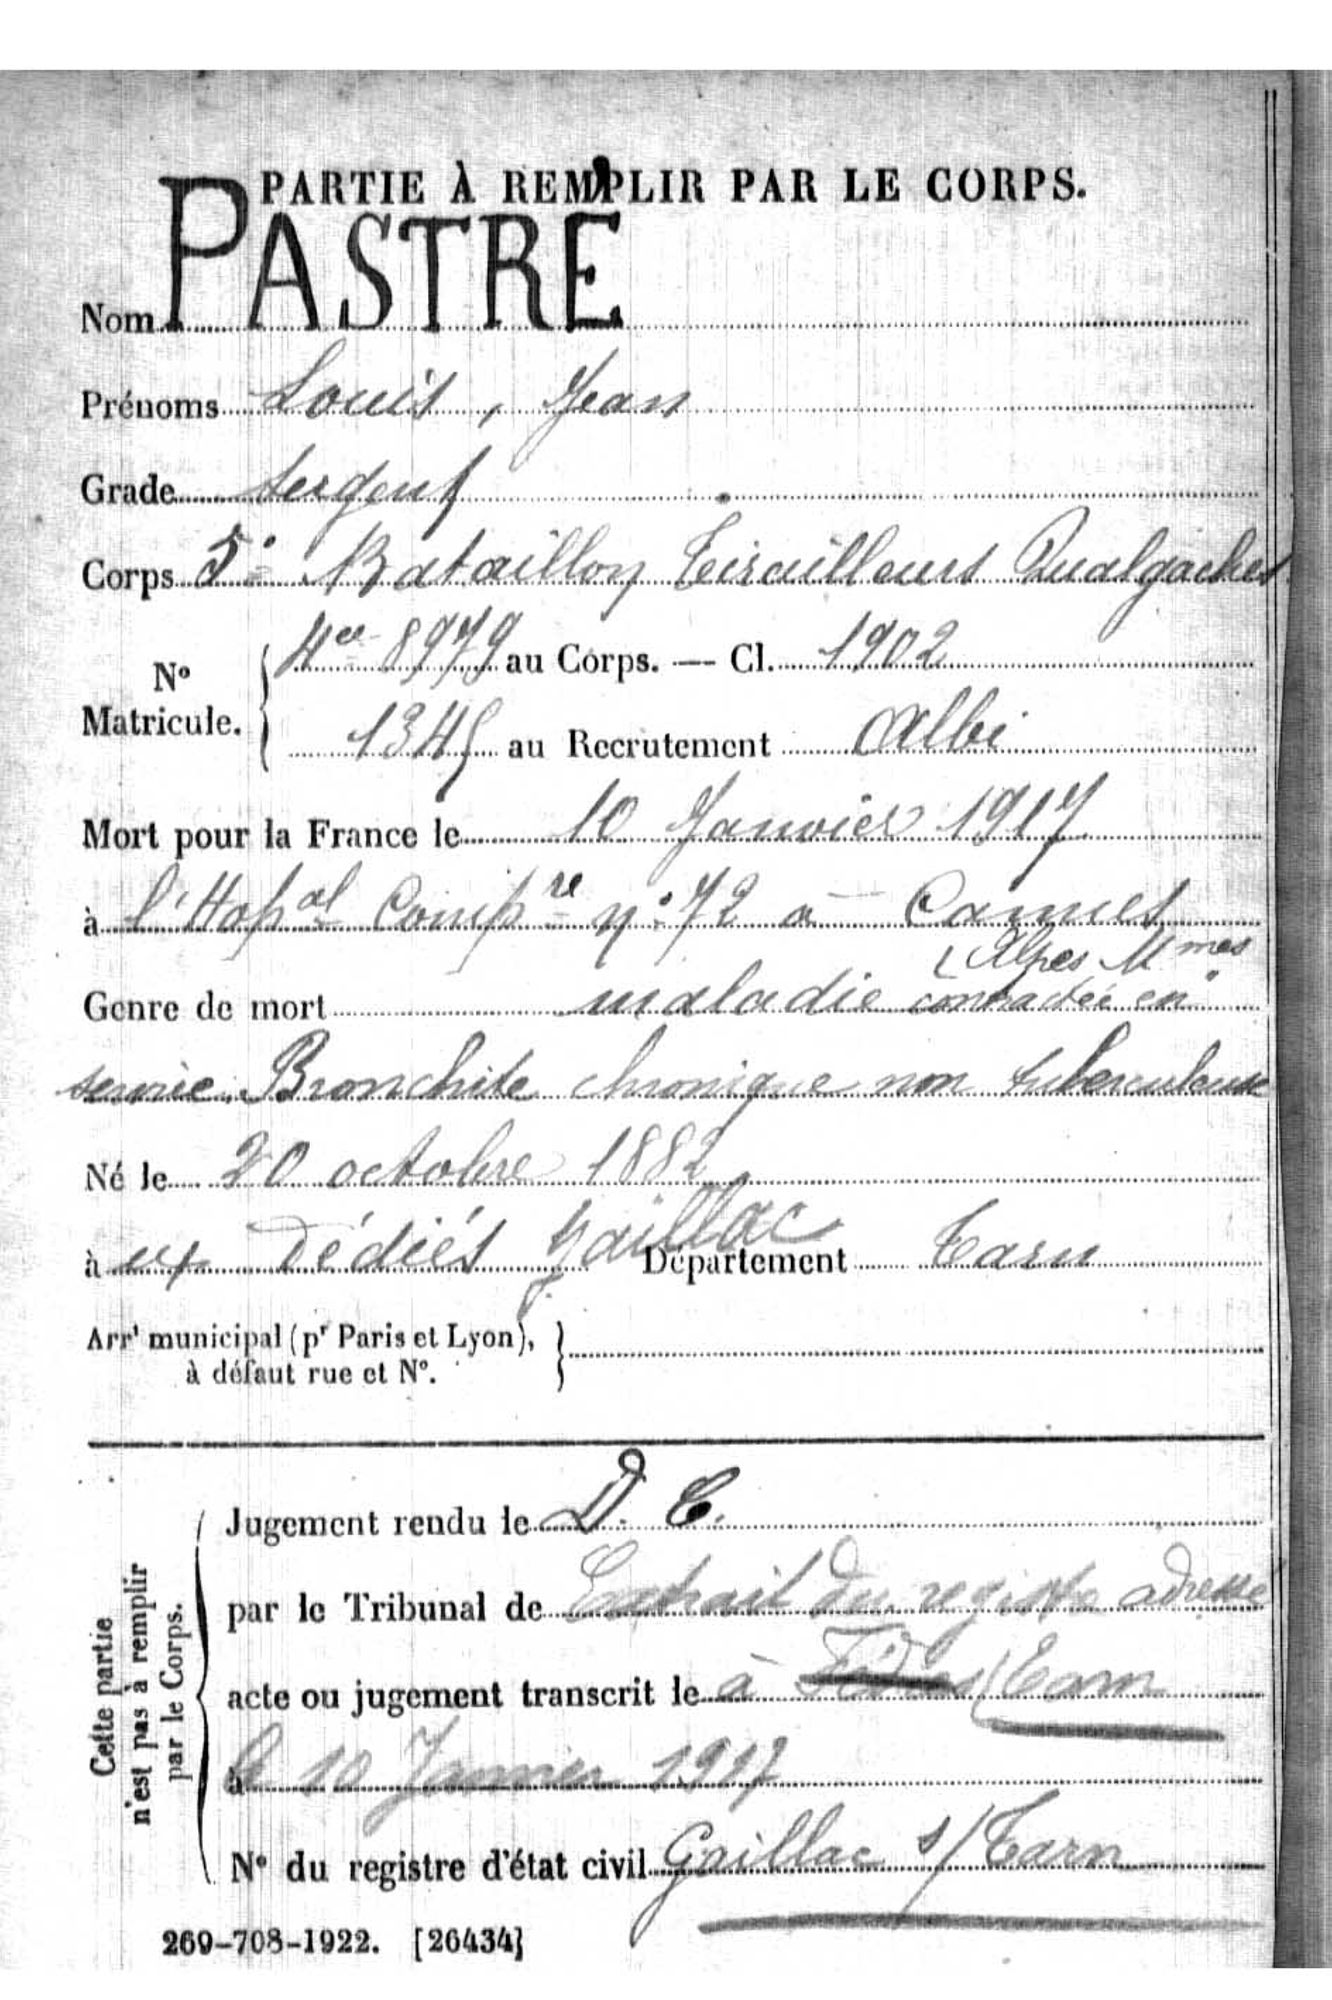 PARTIE À REMPLIR PAR LE CORPS.
Nom PASTRÉ
Prénoms Louis, Jean
Grade Sergent
Corps 5e Bataillon Tirailleurs Malgaches
N° Matricule. 4ce 8979 au Corps. — Cl. 1902
1345 au Recrutement Albi
Mort pour la France le 10 Janvier 1917
à l'Hopal Compre n° 72 à Cannes
(Alpes Mmes
Genre de mort maladie contractée en
service. Bronchite chronique non tuberculeuse
Né le 20 octobre 1882
à Gaillac Département Tarn
Arrt municipal (pr Paris et Lyon),
à défaut rue et N°.
Cette partie
n'est pas à remplir
par le Corps.
Jugement rendu le D. C.
par le Tribunal de Extrait du registre adressé
acte ou jugement transcrit le à (Tarn
à le 10 Janvier 1917
N° du registre d'état civil Gaillac s/ Tarn
269-708-1922. [26434]